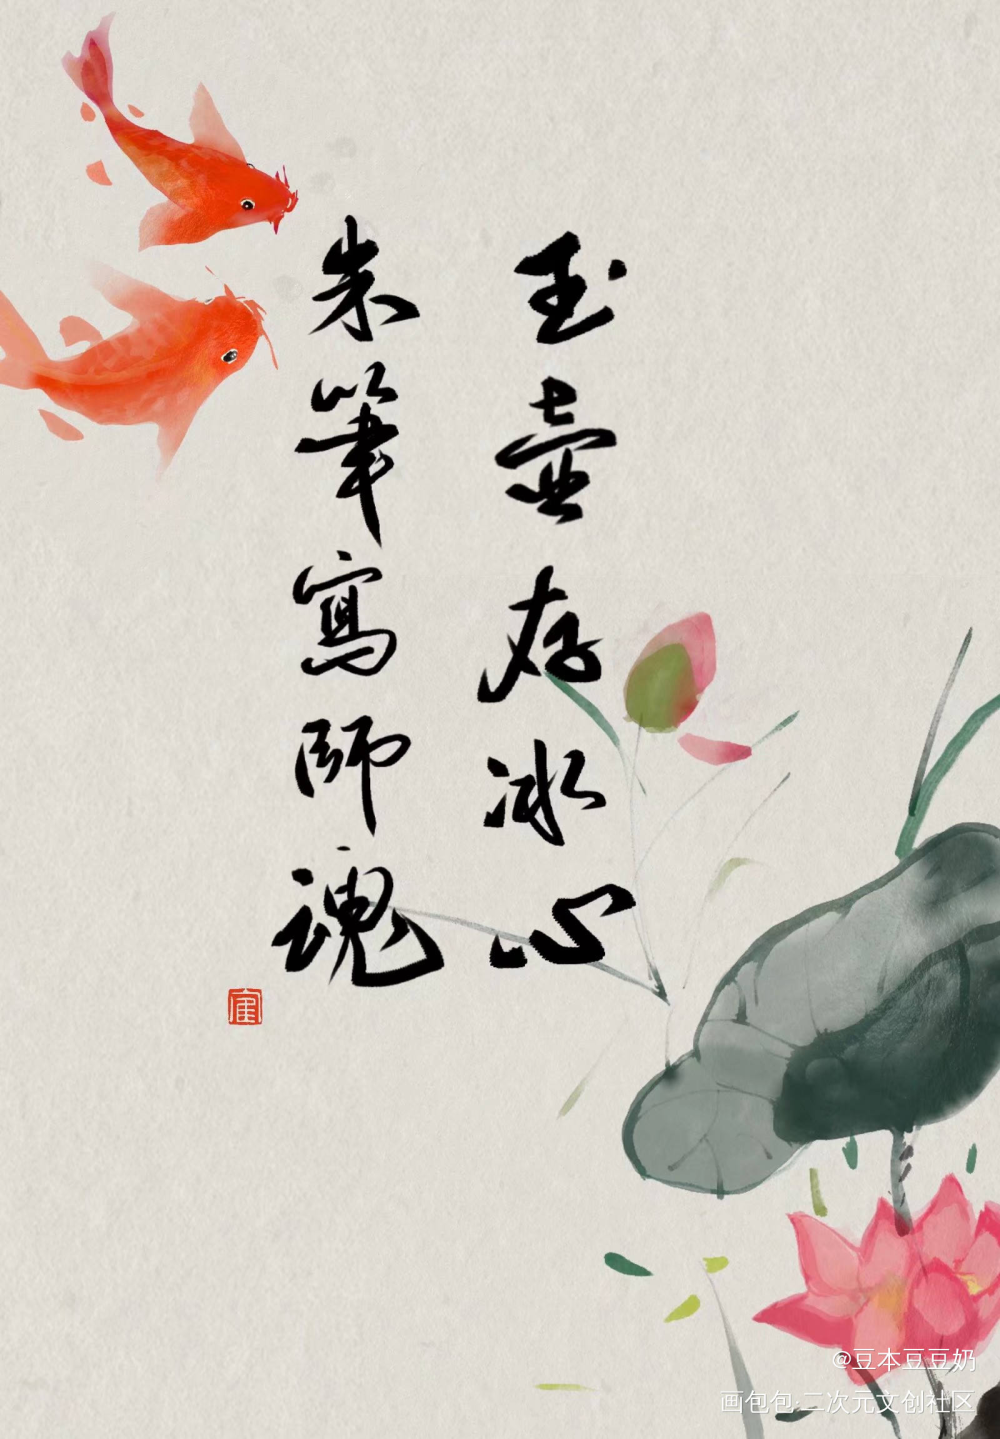 玉壺存冰心
朱筆寫師魂
@豆本豆豆奶
画包包·二次元文创社区